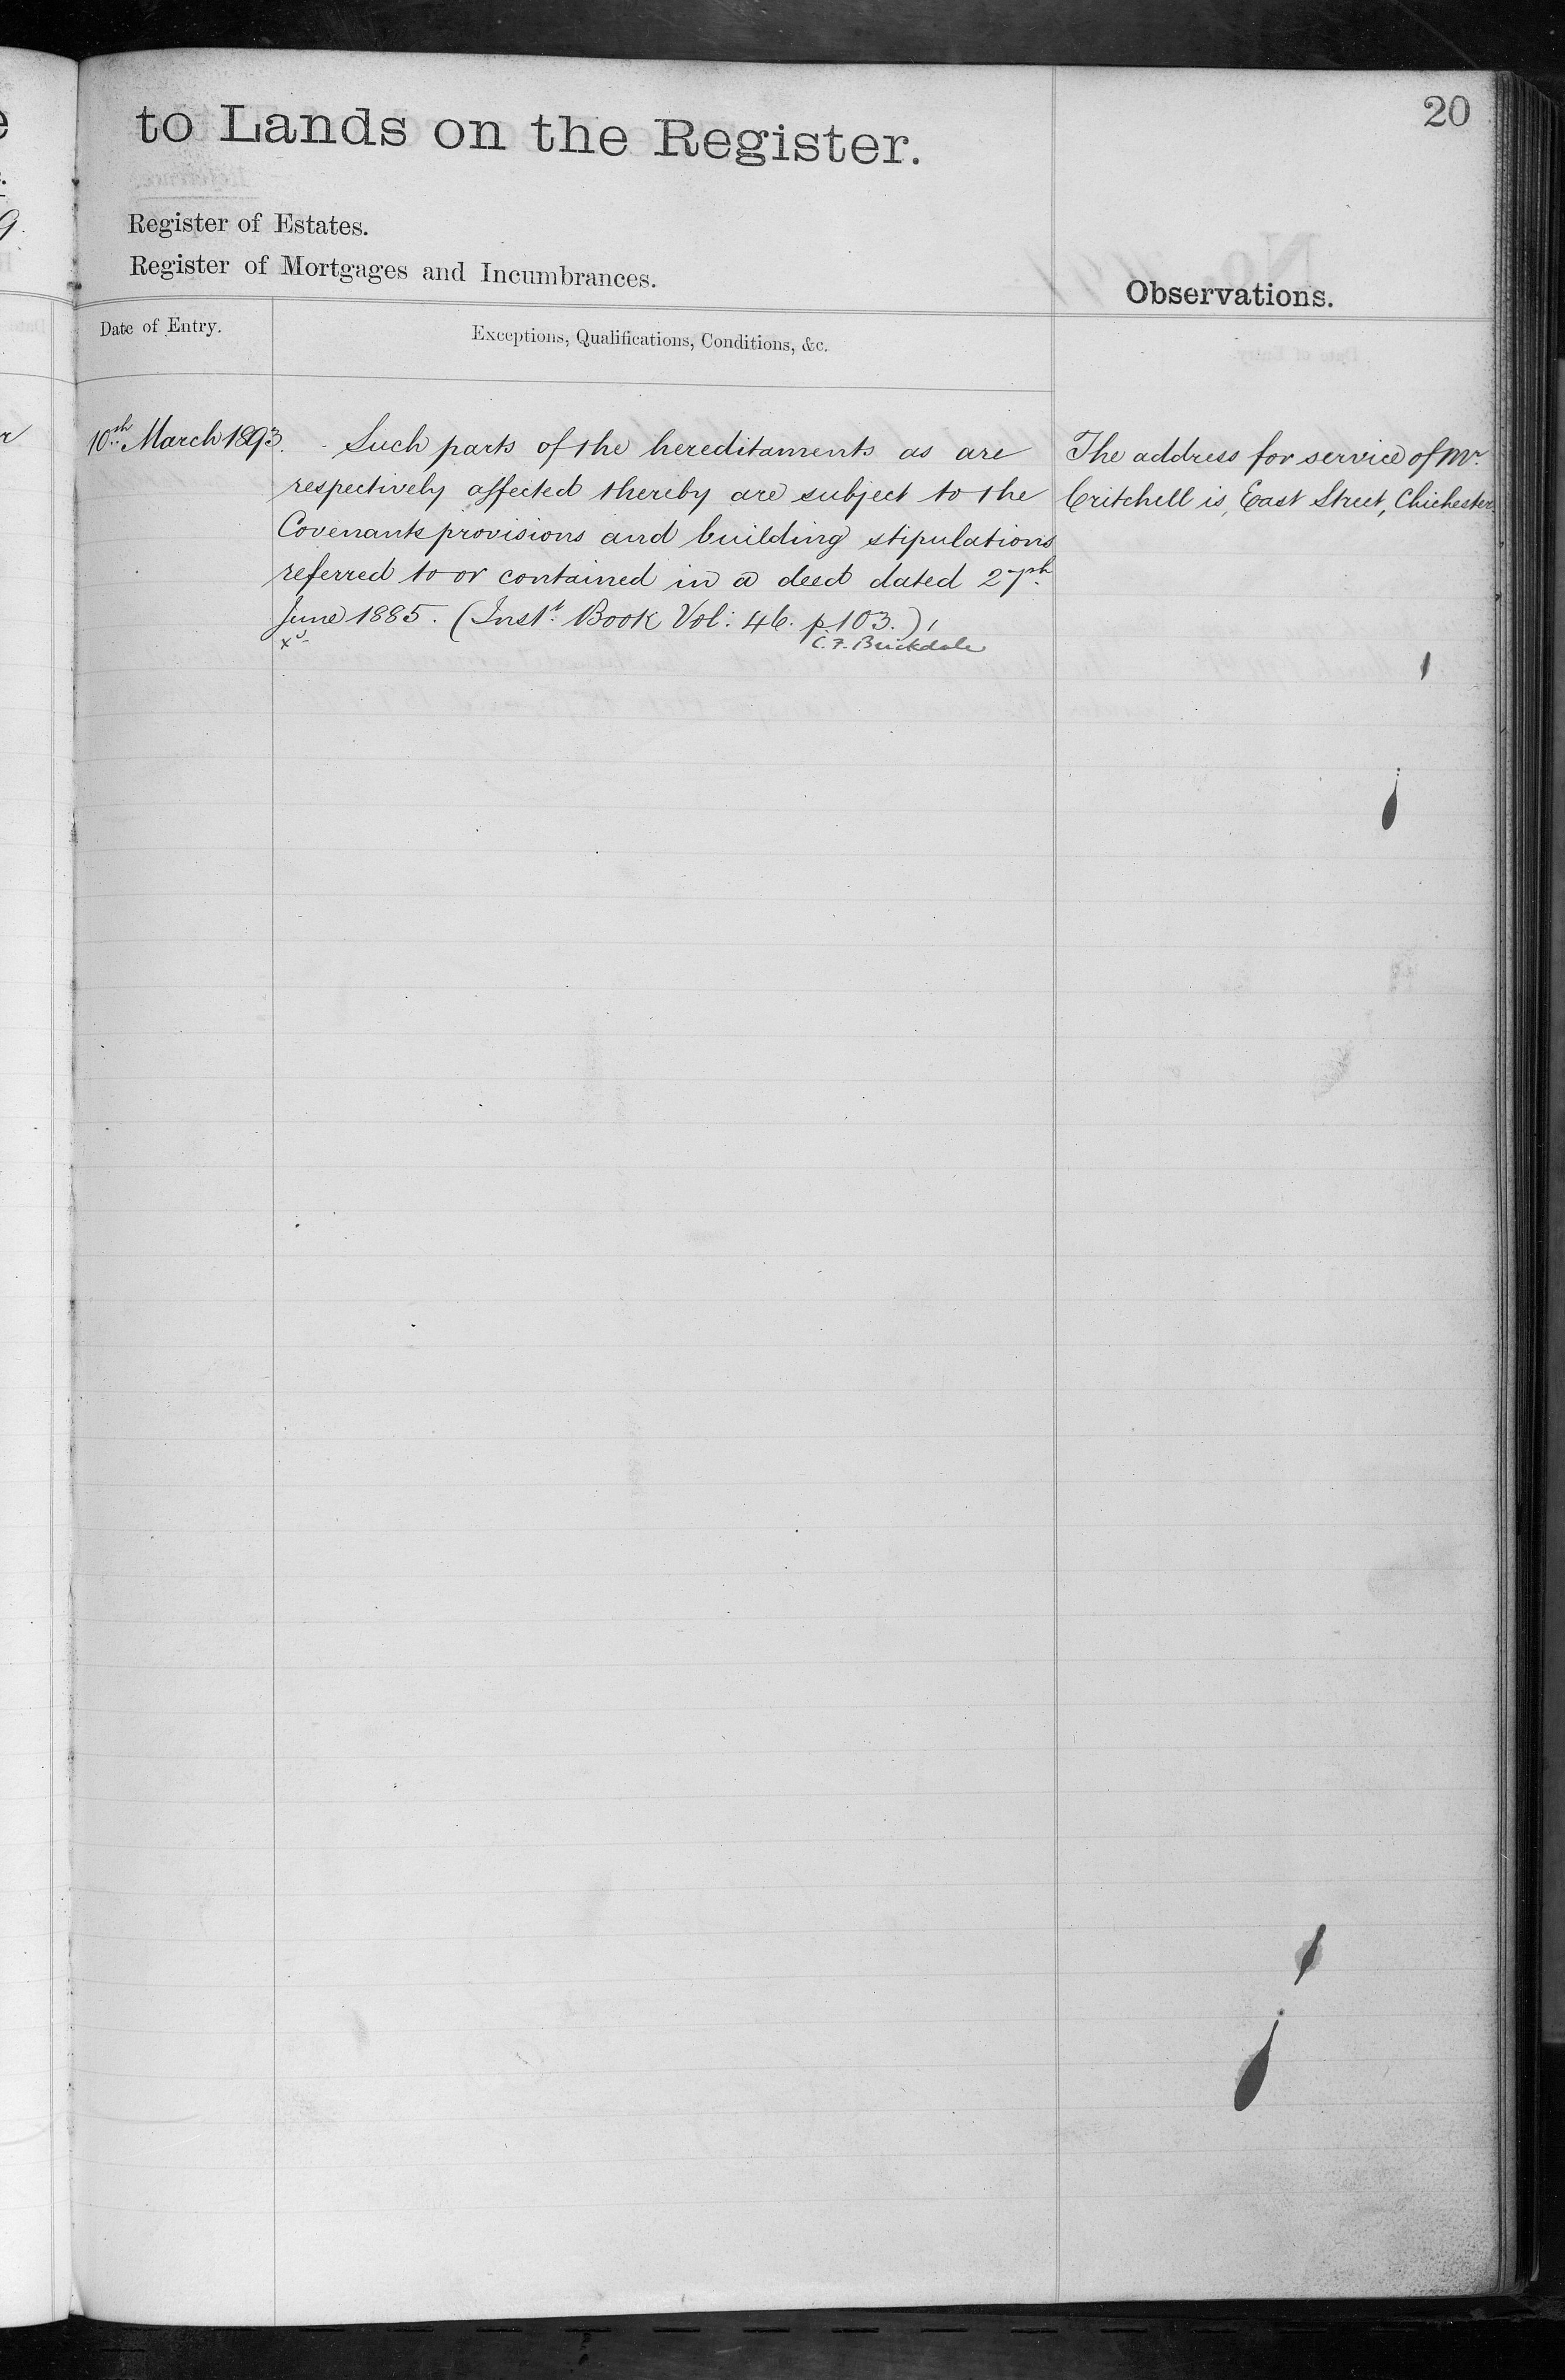 20
to Lands on the Register.
Register of Estates.
Register of Mortgages and Incumbrances.
Observations.
Date of Entry.
Exceptions, Qualifications, Conditions, &c.
10th March 1893. Such parts of the hereditaments as are
respectively affected thereby are subject to the
Covenants provisions and building stipulations
referred to or contained in a deed dated 27th
June 1885. (Inst. Book Vol: 46. p 103.)
C. F. Brickdale
The address for service of Mr.
Critchell is, East Street, Chichester.